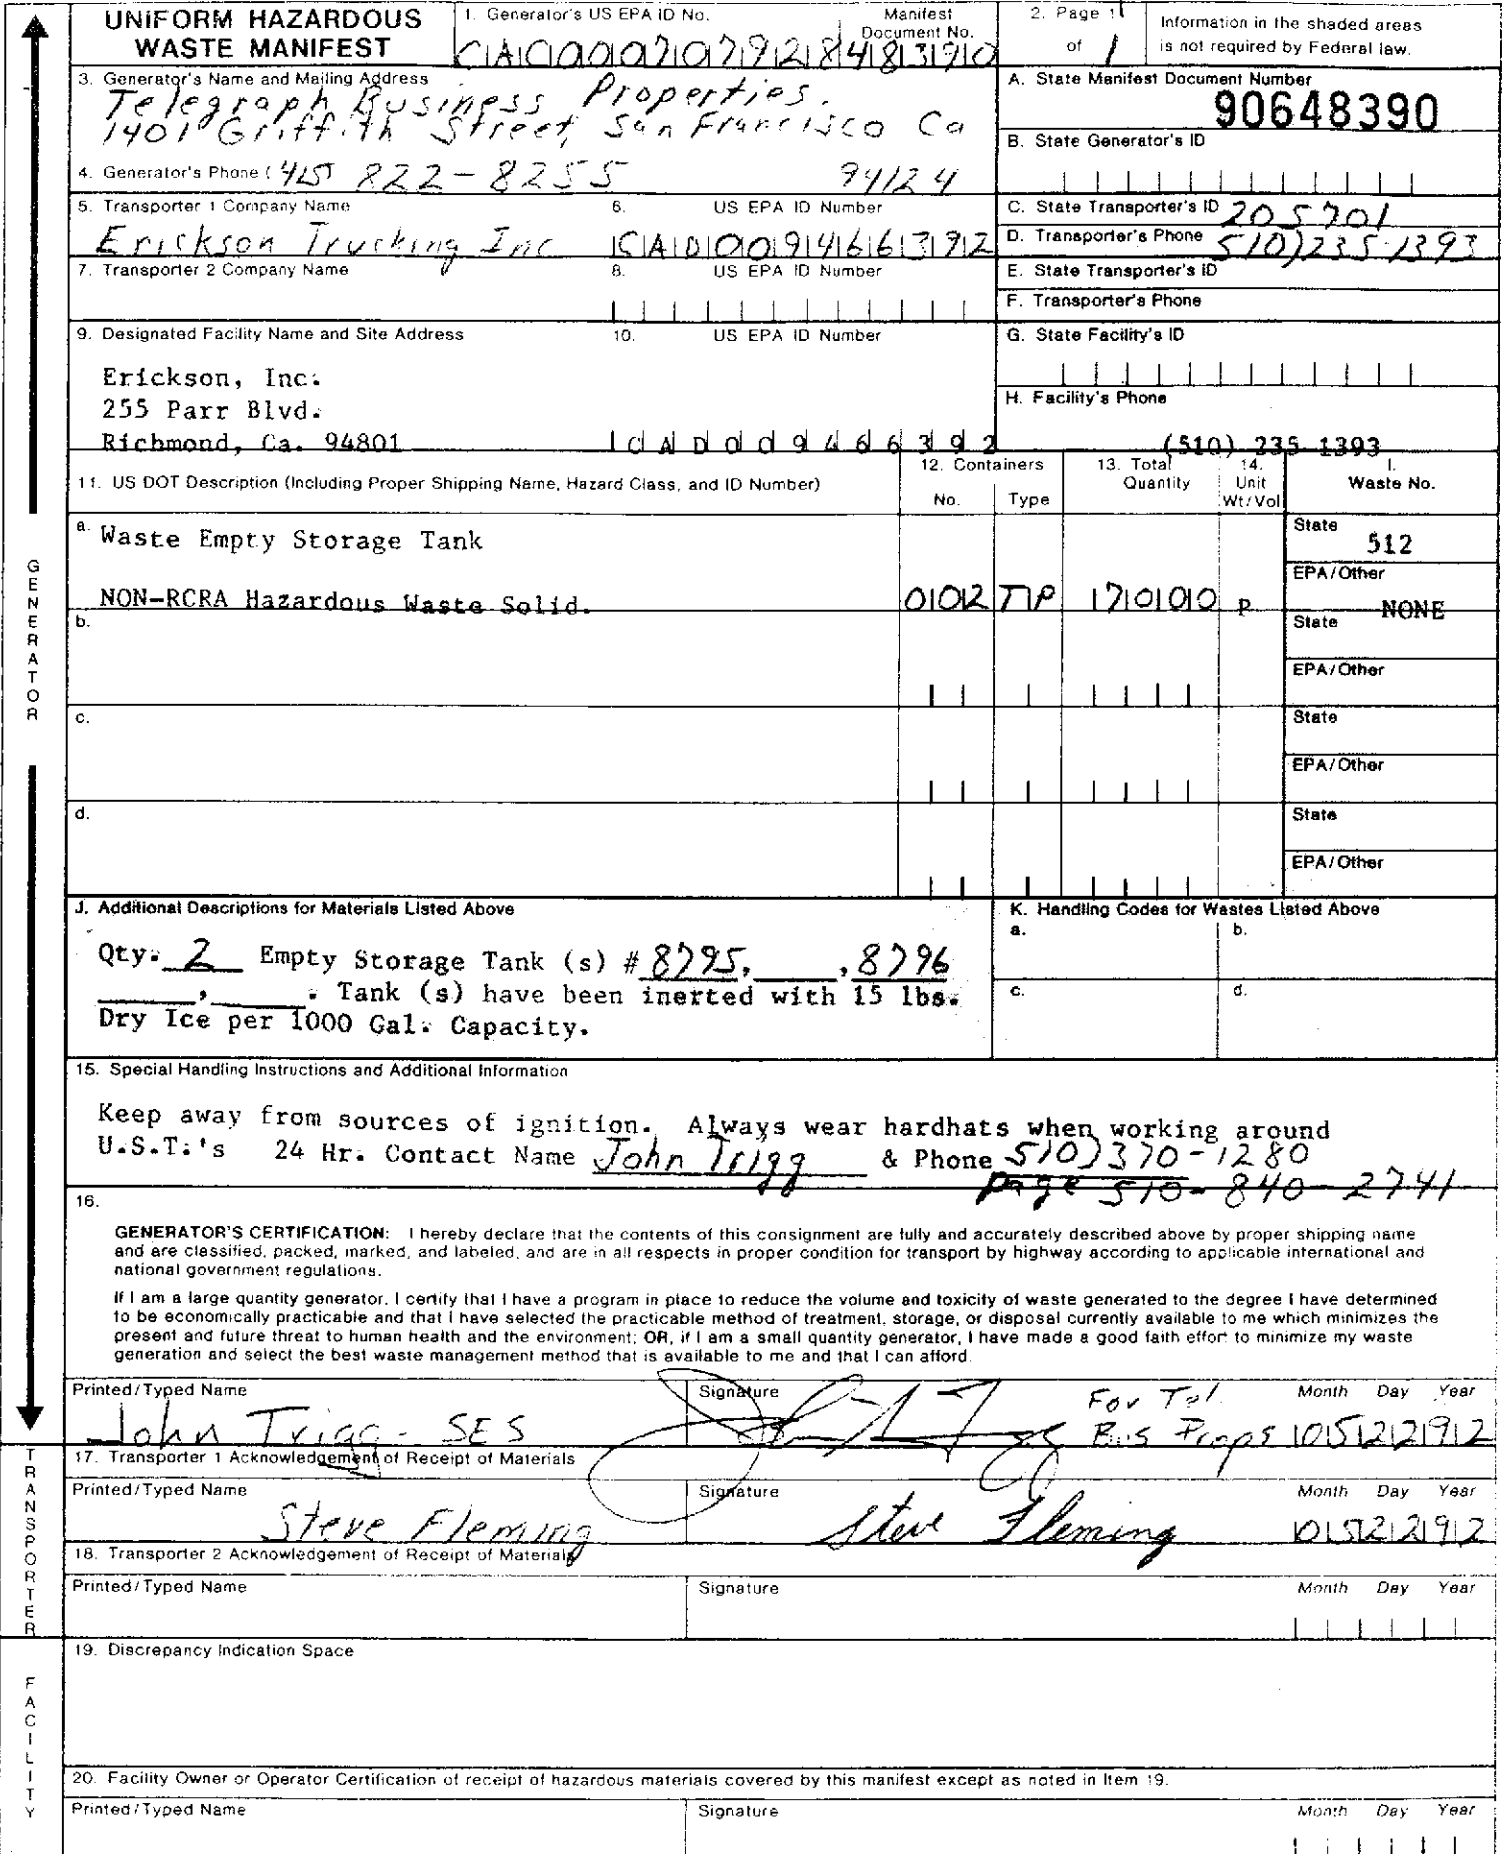 UNIFORM HAZARDOUS
WASTE MANIFEST
1. Generator's US EPA ID No.
Manifest
Document No.
CAC000707928 48390
2. Page 1
of 1
Information in the shaded areas
is not required by Federal law.
3. Generator's Name and Mailing Address
Telegraph Business Properties.
1401 Griffith Street, San Francisco Ca
4. Generator's Phone ( 415) 822-8255 94124
A. State Manifest Document Number
90648390
B. State Generator's ID
5. Transporter 1 Company Name
Erickson Trucking Inc
6. US EPA ID Number
CAD009466392
C. State Transporter's ID 205701
D. Transporter's Phone 510)235-1393
7. Transporter 2 Company Name
8. US EPA ID Number
E. State Transporter's ID
F. Transporter's Phone
9. Designated Facility Name and Site Address
10. US EPA ID Number
Erickson, Inc.
255 Parr Blvd.
Richmond, Ca. 94801
CAD009466392
G. State Facility's ID
H. Facility's Phone
(510) 235-1393
11. US DOT Description (Including Proper Shipping Name, Hazard Class, and ID Number)
12. Containers
No. Type
13. Total
Quantity
14.
Unit
Wt/Vol
I.
Waste No.
a. Waste Empty Storage Tank
NON-RCRA Hazardous Waste Solid.
002 TP 17000 P
State
512
EPA/Other
NONE
b.
State
EPA/Other
c.
State
EPA/Other
d.
State
EPA/Other
J. Additional Descriptions for Materials Listed Above
Qty. 2 Empty Storage Tank (s) # 8795, ____, 8796
____, ____. Tank (s) have been inerted with 15 lbs.
Dry Ice per 1000 Gal. Capacity.
K. Handling Codes for Wastes Listed Above
a. b.
c. d.
15. Special Handling Instructions and Additional Information
Keep away from sources of ignition. Always wear hardhats when working around
U.S.T.'s 24 Hr. Contact Name John Trigg & Phone 510)370-1280
page 510-840-2741
16.
GENERATOR'S CERTIFICATION: I hereby declare that the contents of this consignment are fully and accurately described above by proper shipping name
and are classified, packed, marked, and labeled, and are in all respects in proper condition for transport by highway according to applicable international and
national government regulations.
If I am a large quantity generator, I certify that I have a program in place to reduce the volume and toxicity of waste generated to the degree I have determined
to be economically practicable and that I have selected the practicable method of treatment, storage, or disposal currently available to me which minimizes the
present and future threat to human health and the environment; OR, if I am a small quantity generator, I have made a good faith effort to minimize my waste
generation and select the best waste management method that is available to me and that I can afford.
Printed/Typed Name
John Trigg - SES
Signature
For Tel.
Bus Props
Month Day Year
052292
17. Transporter 1 Acknowledgement of Receipt of Materials
Printed/Typed Name
Steve Fleming
Signature
Steve Fleming
Month Day Year
052292
18. Transporter 2 Acknowledgement of Receipt of Materials
Printed/Typed Name
Signature
Month Day Year
19. Discrepancy Indication Space
20. Facility Owner or Operator Certification of receipt of hazardous materials covered by this manifest except as noted in Item 19.
Printed/Typed Name
Signature
Month Day Year
GENERATOR
TRANSPORTER
FACILITY